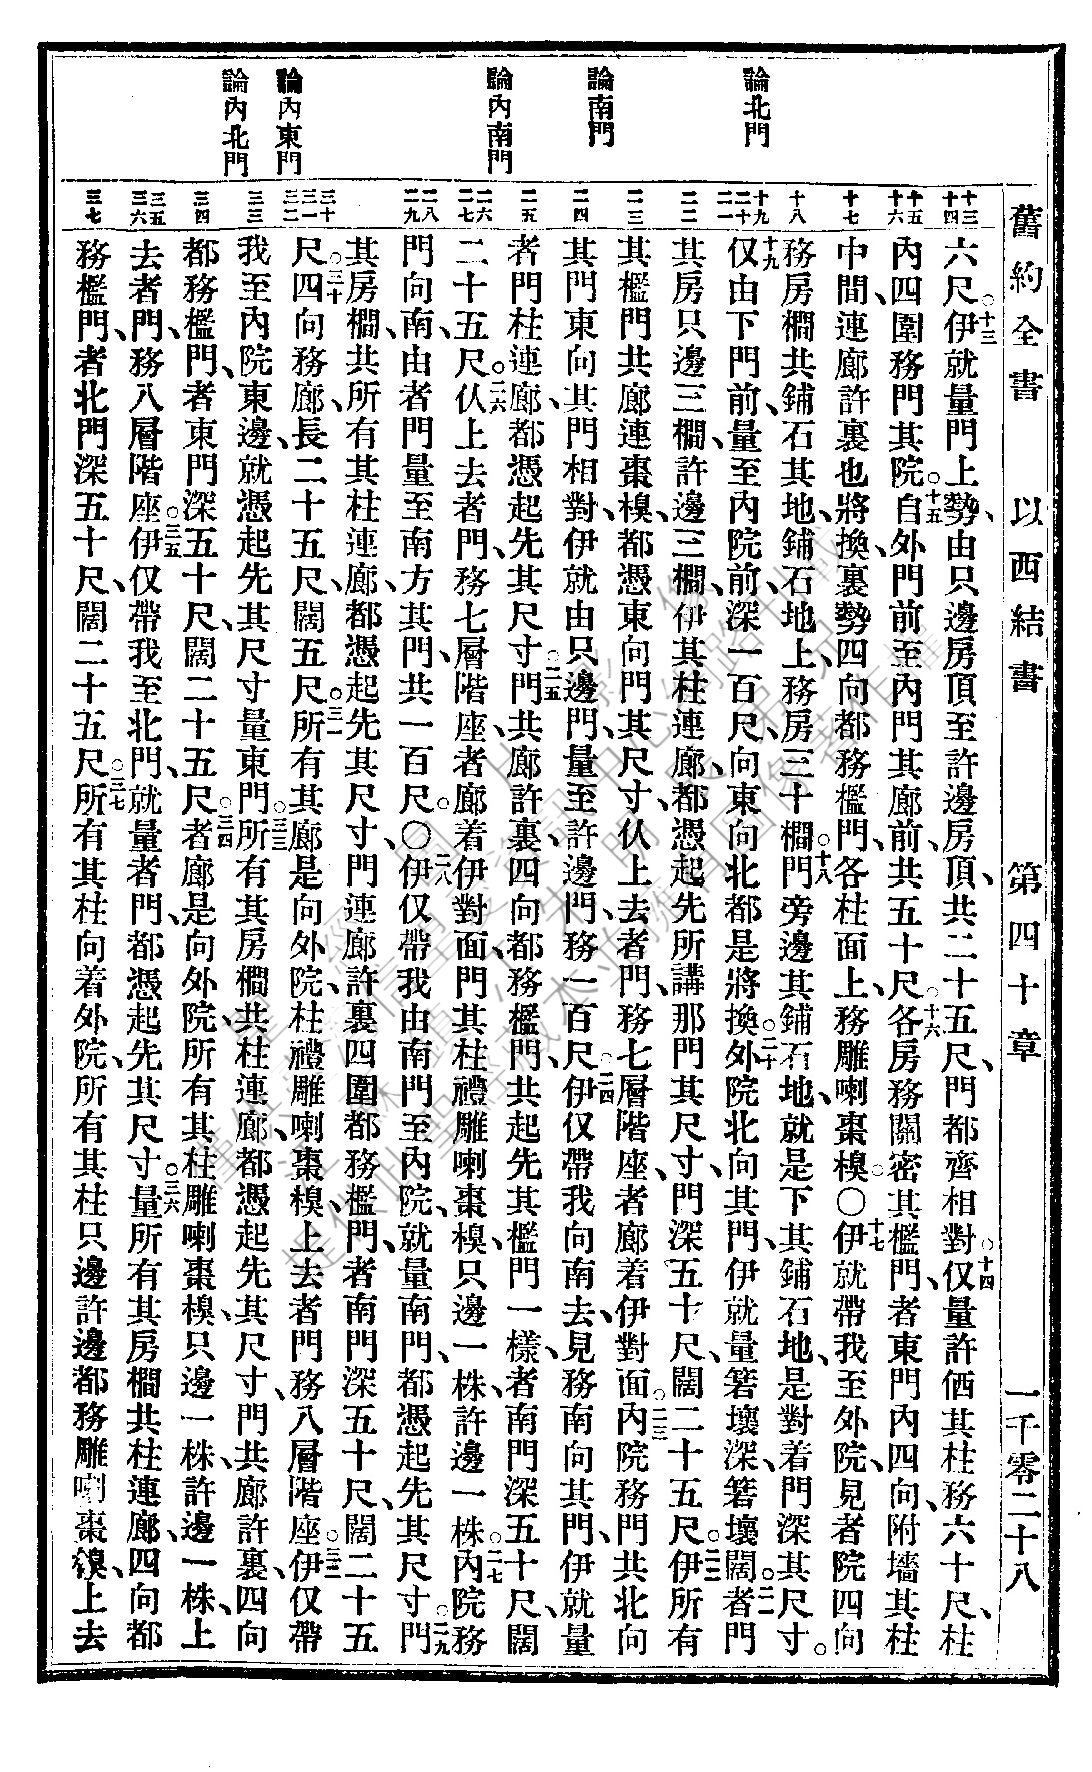 舊約全書　以西結書　第四十章　一千零二十八
論北門
論南門
論內南門
論內東門
論內北門
十三 十四 十五 十六 十七 十八 十九 二十 二一 二二 二三 二四 二五 二六 二七 二八 二九 三十 三一 三二 三三 三四 三五 三六 三七
六尺。○十三伊就量門上勢、由只邊房頂至許邊房頂、共二十五尺、門都齊相對。○十四仅量許価其柱、務六十尺、柱
內四圍務門其院。○十五自外門前至內門其廊前、共五十尺。○十六各房務關密其檻門、者東門內四向、附墻其柱
中間、連廊許裏也將換、裏勢四向都務檻門、各柱面上、務雕喇棗樑。○十七伊就帶我至外院、見者院四向
務房櫚共鋪石其地、鋪石地上、務房三十櫚。○十八門旁邊其鋪石地、就是下其鋪石地、是對着門深其尺寸。
十九仅由下門前、量至內院前、深一百尺、向東向北都是將換。○二十外院北向其門、伊就量箬壞深、箬壞闊。○二一者門
其房只邊三櫚、許邊三櫚、伊其柱連廊、都憑起先所講那門其尺寸、門深五十尺、闊二十五尺。○二二伊所有
其檻門共廊連棗樑、都憑東向門其尺寸、仈上去者門、務七層階座、者廊着伊對面。○二三內院務門共北向
其門東向其門相對、伊就由只邊門、量至許邊門、務一百尺。○二四伊仅帶我向南去、見務南向其門、伊就量
者門柱連廊、都憑起先其尺寸。○二五門共廊許裏、四向都務檻門、共起先其檻門一樣、者南門深五十尺、闊
二十五尺。○二六仈上去者門、務七層階座、者廊着伊對面、門其柱禮雕喇棗樑、只邊一株、許邊一株。○二七內院務
門向南、由者門量至南方其門、共一百尺。○二八伊仅帶我由南門至內院、就量南門、都憑起先其尺寸。○二九門
其房櫚、共所有其柱連廊、都憑起先其尺寸、門連廊許裏四圍都務檻門、者南門深五十尺、闊二十五
尺。○三十四向務廊、長二十五尺、闊五尺。○三一所有其廊是向外院、柱禮雕喇棗樑、上去者門務八層階座。○三二伊仅帶
我至內院東邊、就憑起先其尺寸量東門。○三三所有其房櫚共柱連廊、都憑起先其尺寸、門共廊許裏、四向
都務檻門、者東門深五十尺、闊二十五尺。○三四者廊是向外院、所有其柱雕喇棗樑、只邊一株、許邊一株、上
去者門、務八層階座。○三五伊仅帶我至北門、就量者門、都憑起先其尺寸。○三六量所有其房櫚共柱連廊、四向都
務檻門、者北門深五十尺、闊二十五尺。○三七所有其柱向着外院、所有其柱只邊許邊都務雕喇棗樑、上去